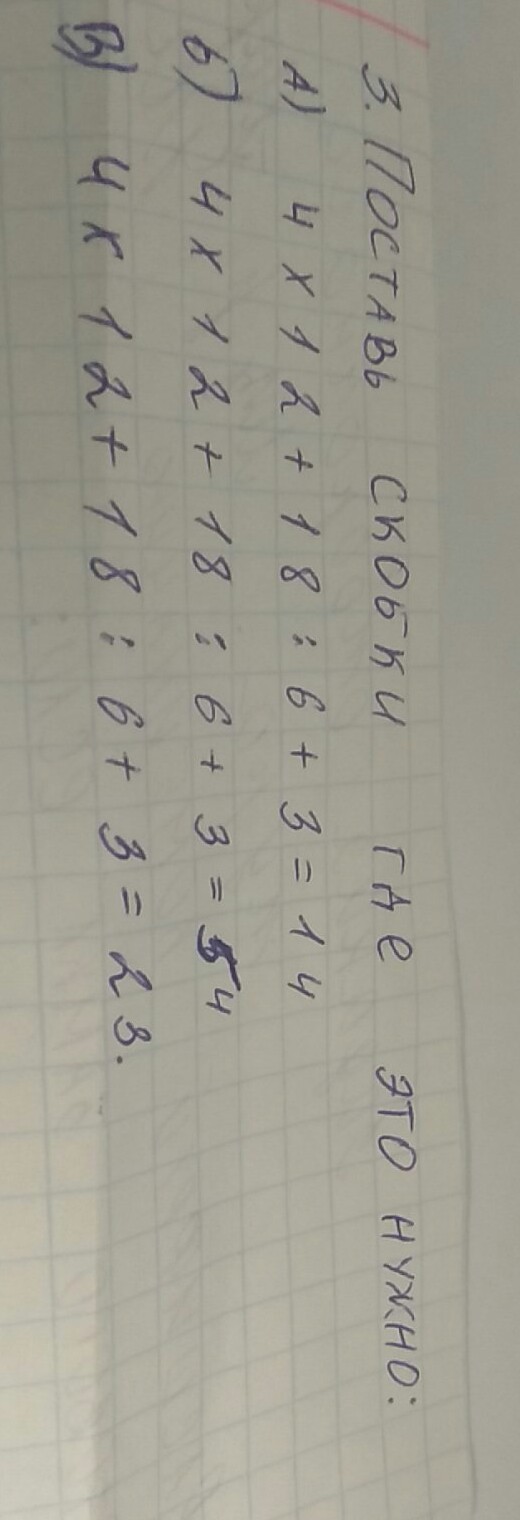 3. ПОСТАВЬ СКОБКИ ГДЕ ЭТО НУЖНО:
А) 4 х 12 + 18 : 6 + 3 = 14
б) 4 х 12 + 18 : 6 + 3 = 54
В) 4 х 12 + 18 : 6 + 3 = 23.